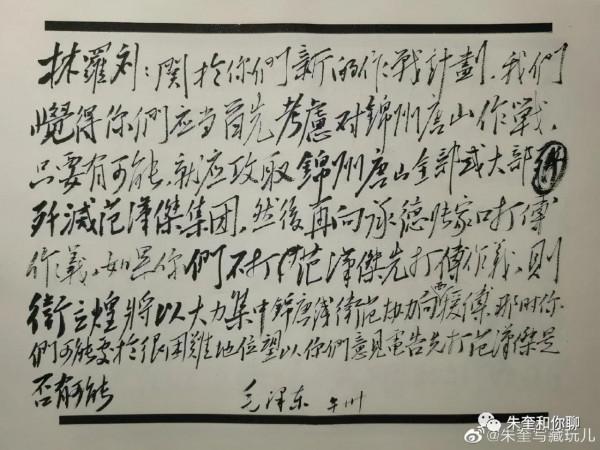 林羅刘：関於你們新的作戰計劃，我們
覺得你們应当首先考慮对錦州唐山作戰，
只要有可能，就应攻取錦州唐山全部或大部
歼滅范漢傑集团，然後再向承德张家口打傅
作義。如果你們不打范漢傑先打傅作義，則
衛立煌將以大力集中錦唐线衛范协力向西援傅，那时你
們可能處於很困難地位望以你們意見電告先打范漢傑是
否有可能
毛澤东 午卅
朱奎和你聊
@朱奎写藏玩儿